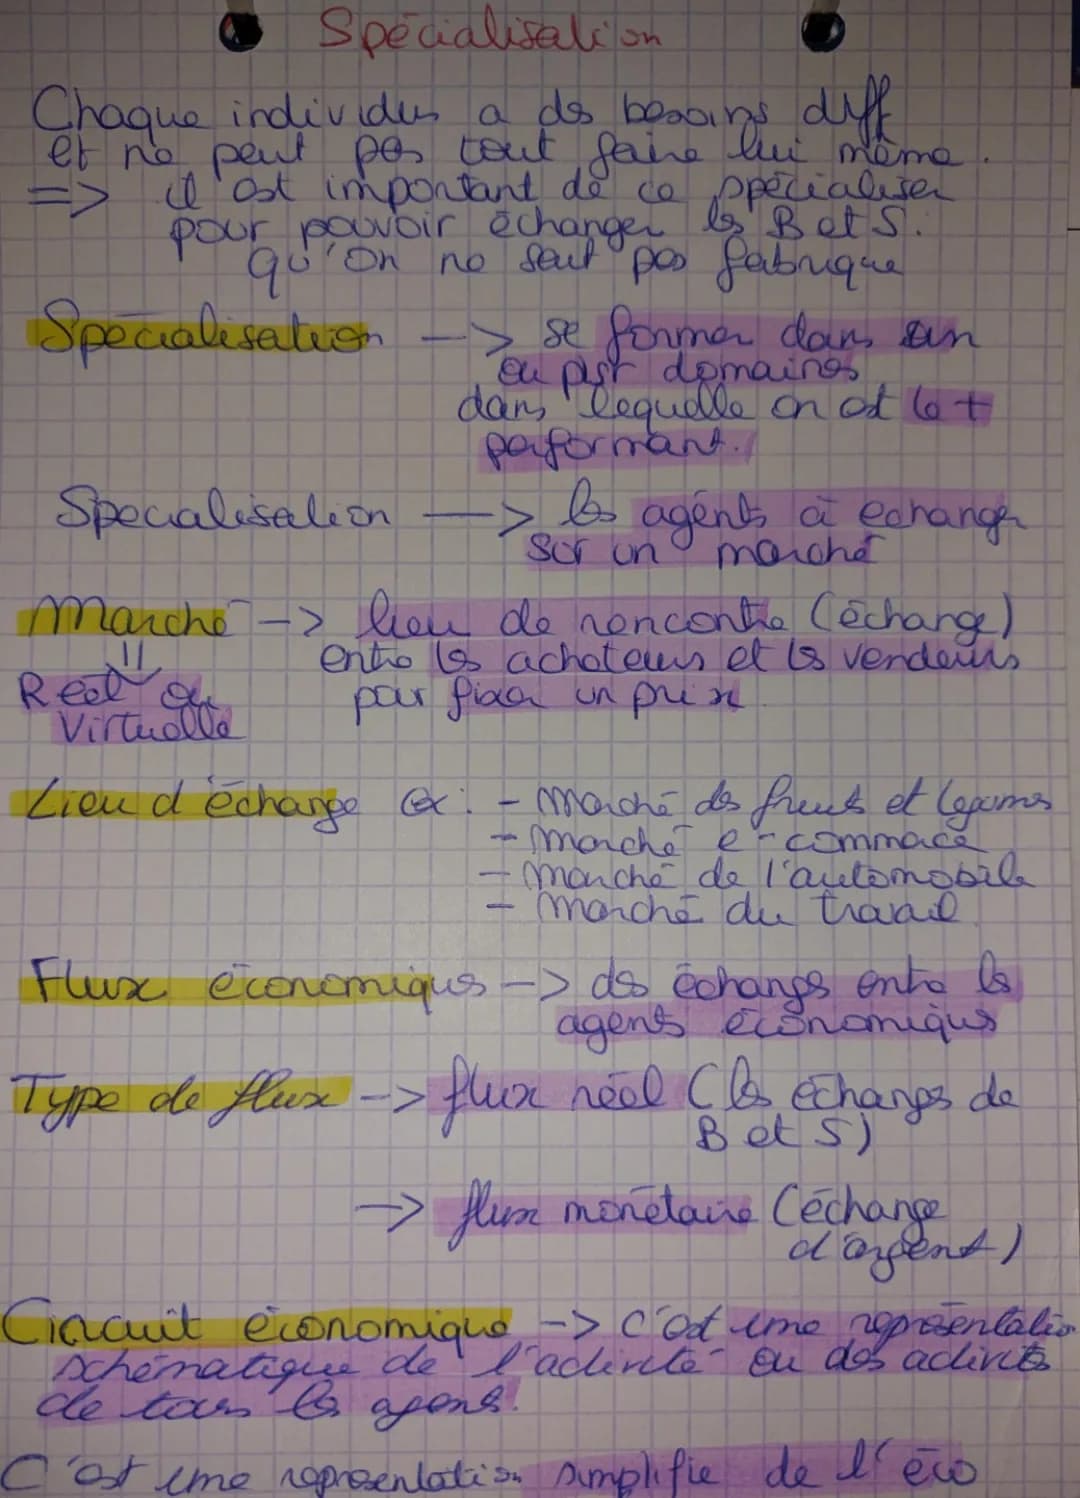 Spécialisation
Chaque individus a des besoins diff
et ne peut pas tout faire lui même.
=> il est important de ce spécialiser
pour pouvoir échanger les B et S.
qu'on ne seut pas fabrique
Spécialisation —> se former dans un
ou plsr domaines
dans lequelle on est le +
performant.
Spécialisation —> les agents à échanger
sur un marché
Marché —> lieu de rencontre (échange)
entre les acheteurs et les vendeurs
par fixer un prix
Réel ou
Virtuelle
Lieu d'échange ex: - Marché des fruits et légumes
- Marché e-commerce
- Marché de l'automobile
- Marché du travail
Flux économiques —> des échanges entre les
agents économiques
Type de flux —> flux réel (les échanges de
B et S)
—> flux monétaire (échange
d'argent)
Circuit économique —> c'est une représentation
schématique de l'activité ou des activités
de tous les agens.
C'est une représentation simplifie de l'éco